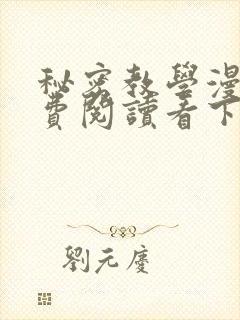 秘密教學漫
費閱讀看下
劉元慶